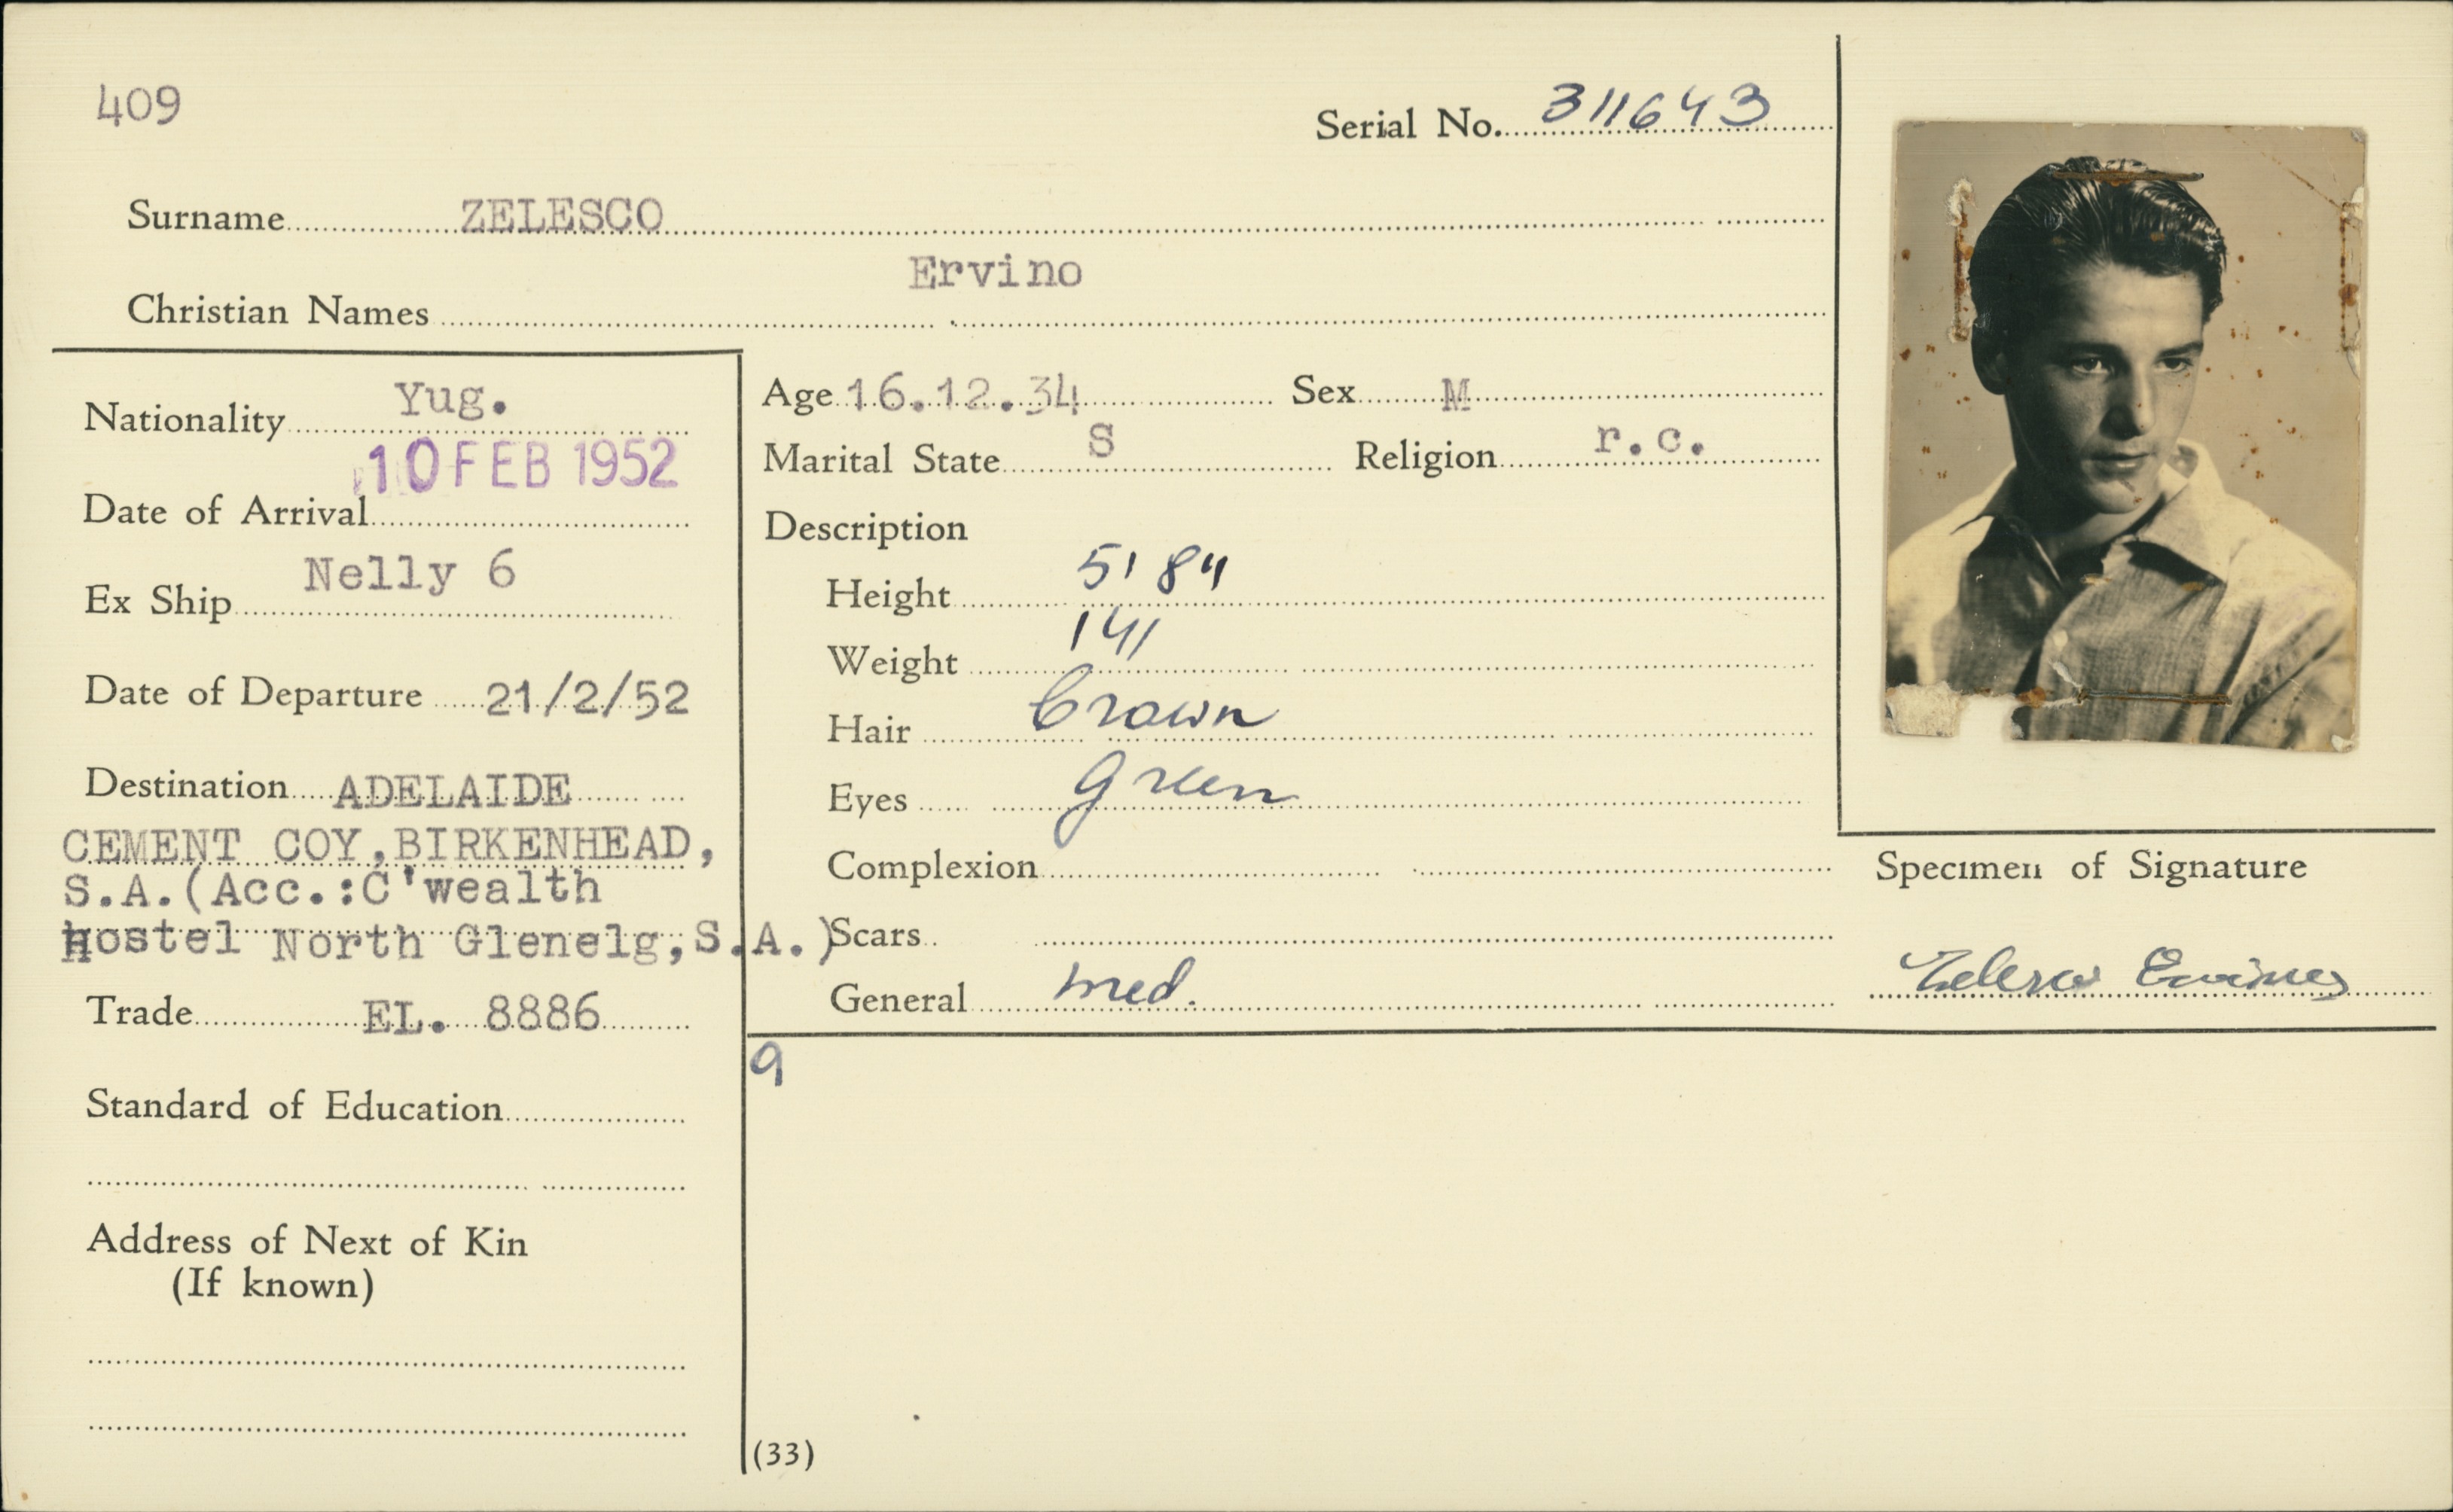 409
Serial No. 311643
Surname ZELESCO
Ervino
Christian Names
Nationality Yug.
Date of Arrival 10 FEB 1952
Ex Ship Nelly 6
Date of Departure 21/2/52
Destination ADELAIDE
CEMENT COY,BIRKENHEAD,
S.A.(Acc.:C'wealth
Hostel North Glenelg,S.A.)
Trade EL. 8886
Standard of Education
Address of Next of Kin
(If known)
Age 16.12.34 Sex M
Marital State S Religion r.c.
Description
Height 5' 8"
Weight 141
Hair brown
Eyes green
Complexion
Scars
General med.
9
(33)
Specimen of Signature
Zelesco